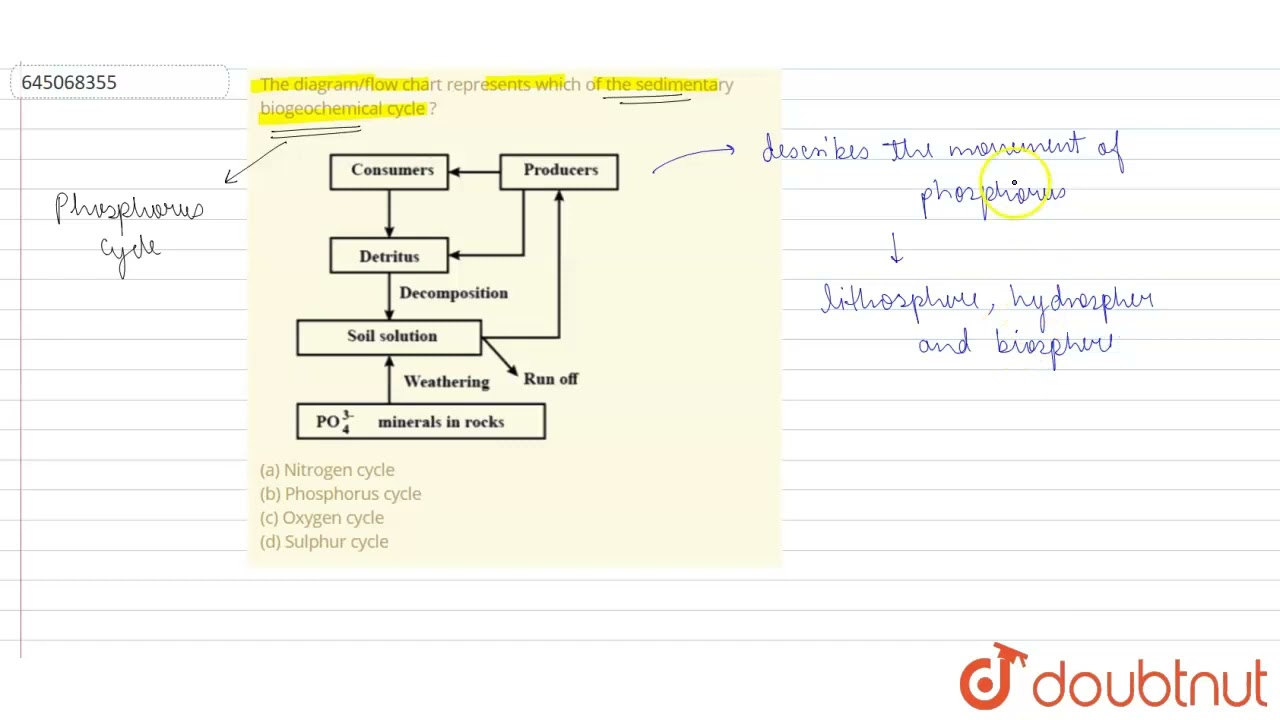 645068355
The diagram/flow chart represents which of the sedimentary
biogeochemical cycle ?
Consumers
Producers
Detritus
Decomposition
Soil solution
Weathering
Run off
PO₄³⁻ minerals in rocks
(a) Nitrogen cycle
(b) Phosphorus cycle
(c) Oxygen cycle
(d) Sulphur cycle
Phosphorus
cycle
describes the movement of
phosphorus
lithosphere, hydrospher
and biosphere
doubtnut